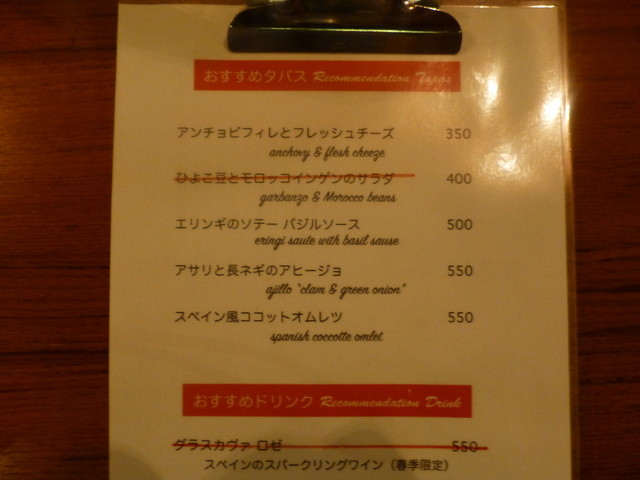 おすすめタパス Recommendation Tapas
アンチョビフィレとフレッシュチーズ 350
anchovy & flesh cheeze
ひよこ豆とモロッコインゲンのサラダ 400
garbanzo & Morocco beans
エリンギのソテー バジルソース 500
eringi saute with basil sause
アサリと長ネギのアヒージョ 550
ajillo "clam & green onion"
スペイン風ココットオムレツ 550
spanish coccotte omlet
おすすめドリンク Recommendation Drink
グラスカヴァ ロゼ 550
スペインのスパークリングワイン（春季限定）